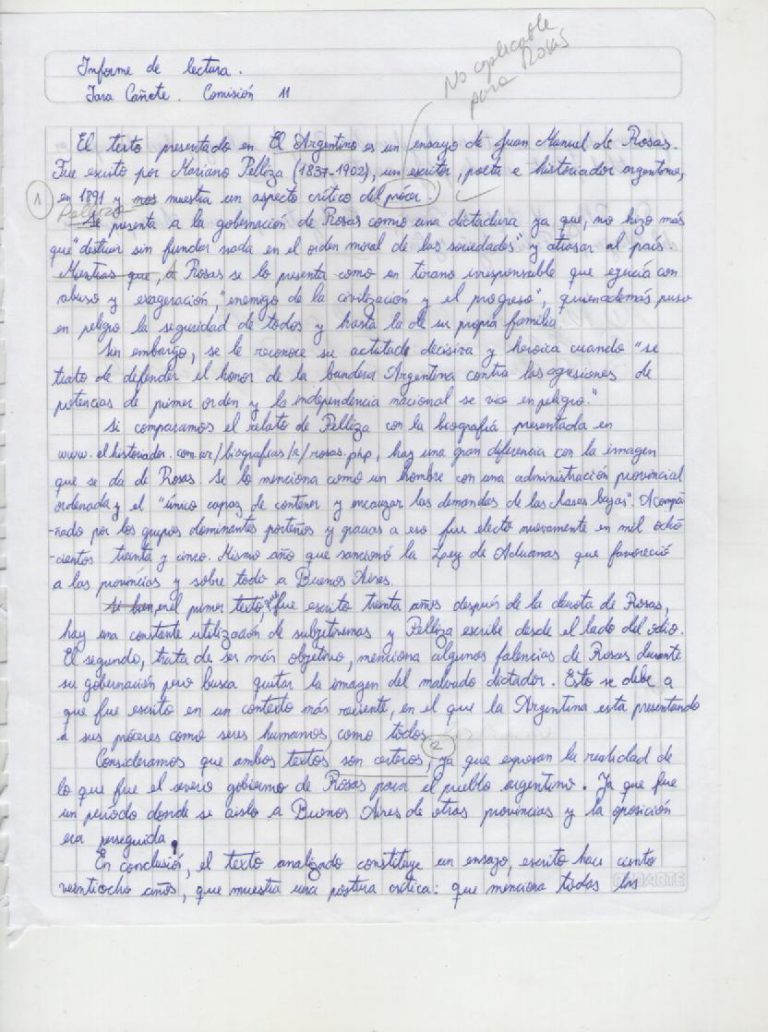 Informe de lectura.
Jara Cañete. Comisión 11
No aplicable
para Rosas
El texto presentado en El Argentino es un ensayo de Juan Manuel de Rosas.
Fue escrito por Mariano Pelliza (1837-1902), un escritor, poeta e historiador argentino,
1 en 1891 y nos muestra un aspecto crítico del prócer.
Pelliza
Se presenta a la gobernación de Rosas como una dictadura ya que, no hizo más
que "destruir sin fundar nada en el orden moral de las sociedades" y atrasar al país
Mientras que, a Rosas se lo presenta como un tirano irresponsable que ejercía con
abuso y exageración, "enemigo de la civilización y el progreso", quien además, puso
en peligro la seguridad de todos y hasta la de su propia familia
Sin embargo, se le reconoce su actitud decisiva y heroica cuando "se
trató de defender el honor de la bandera Argentina contra las agresiones de
potencias de primer orden y la independencia nacional se vio en peligro."
Si comparamos el relato de Pelliza con la biografía presentada en
www.elhistoriador.com.ar/biografias/r/rosas.php, hay una gran diferencia con la imagen
que se da de Rosas. Se lo menciona como un hombre con una administración provincial
ordenada y el "único capaz de contener y encauzar las demandas de las clases bajas". Acompa-
-ñado por los grupos dominantes porteños y gracias a eso fue electo nuevamente en mil ocho
-cientos treinta y cinco. Mismo año que sancionó la Ley de Aduanas que favoreció
a las provincias y sobre todo a Buenos Aires.
Si bien en el primer texto, fue escrito treinta años después de la derrota de Rosas,
hay una constante utilización de subjetivemas y Pelliza escribe desde el lado del odio.
El segundo, trata de ser más objetivo, menciona algunas falencias de Rosas durante
su gobernación pero busca quitar la imagen del malvado dictador. Esto se debe a
que fue escrito en un contexto más reciente, en el que la Argentina está presentando
a sus próceres como seres humanos, como todos.
Consideramos que ambos textos son certeros, 2 ya que expresan la realidad de
lo que fue el severo gobierno de Rosas para el pueblo argentino. Ya que fue
un período donde se aisló a Buenos Aires de otras provincias y la oposición
era perseguida.
En conclusión, el texto analizado constituye un ensayo, escrito hace ciento
veintiocho años, que muestra una postura crítica: que menciona todas las